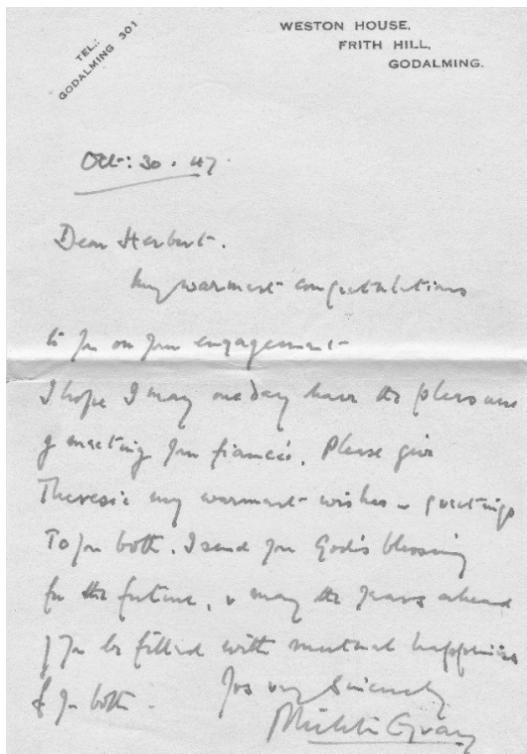 TEL.:
GODALMING 301
WESTON HOUSE,
FRITH HILL,
GODALMING.
Oct: 30. 47.
Dear Herbert.
My warmest congratulations
to you on your engagement
I hope I may one day have the pleasure
of meeting your fiancée. Please give
Theresie my warmest wishes & greetings
To you both. I send you God's blessing
for the future, & may the years ahead
of you be filled with mutual happiness
for you both.
Yrs very sincerely
Gray